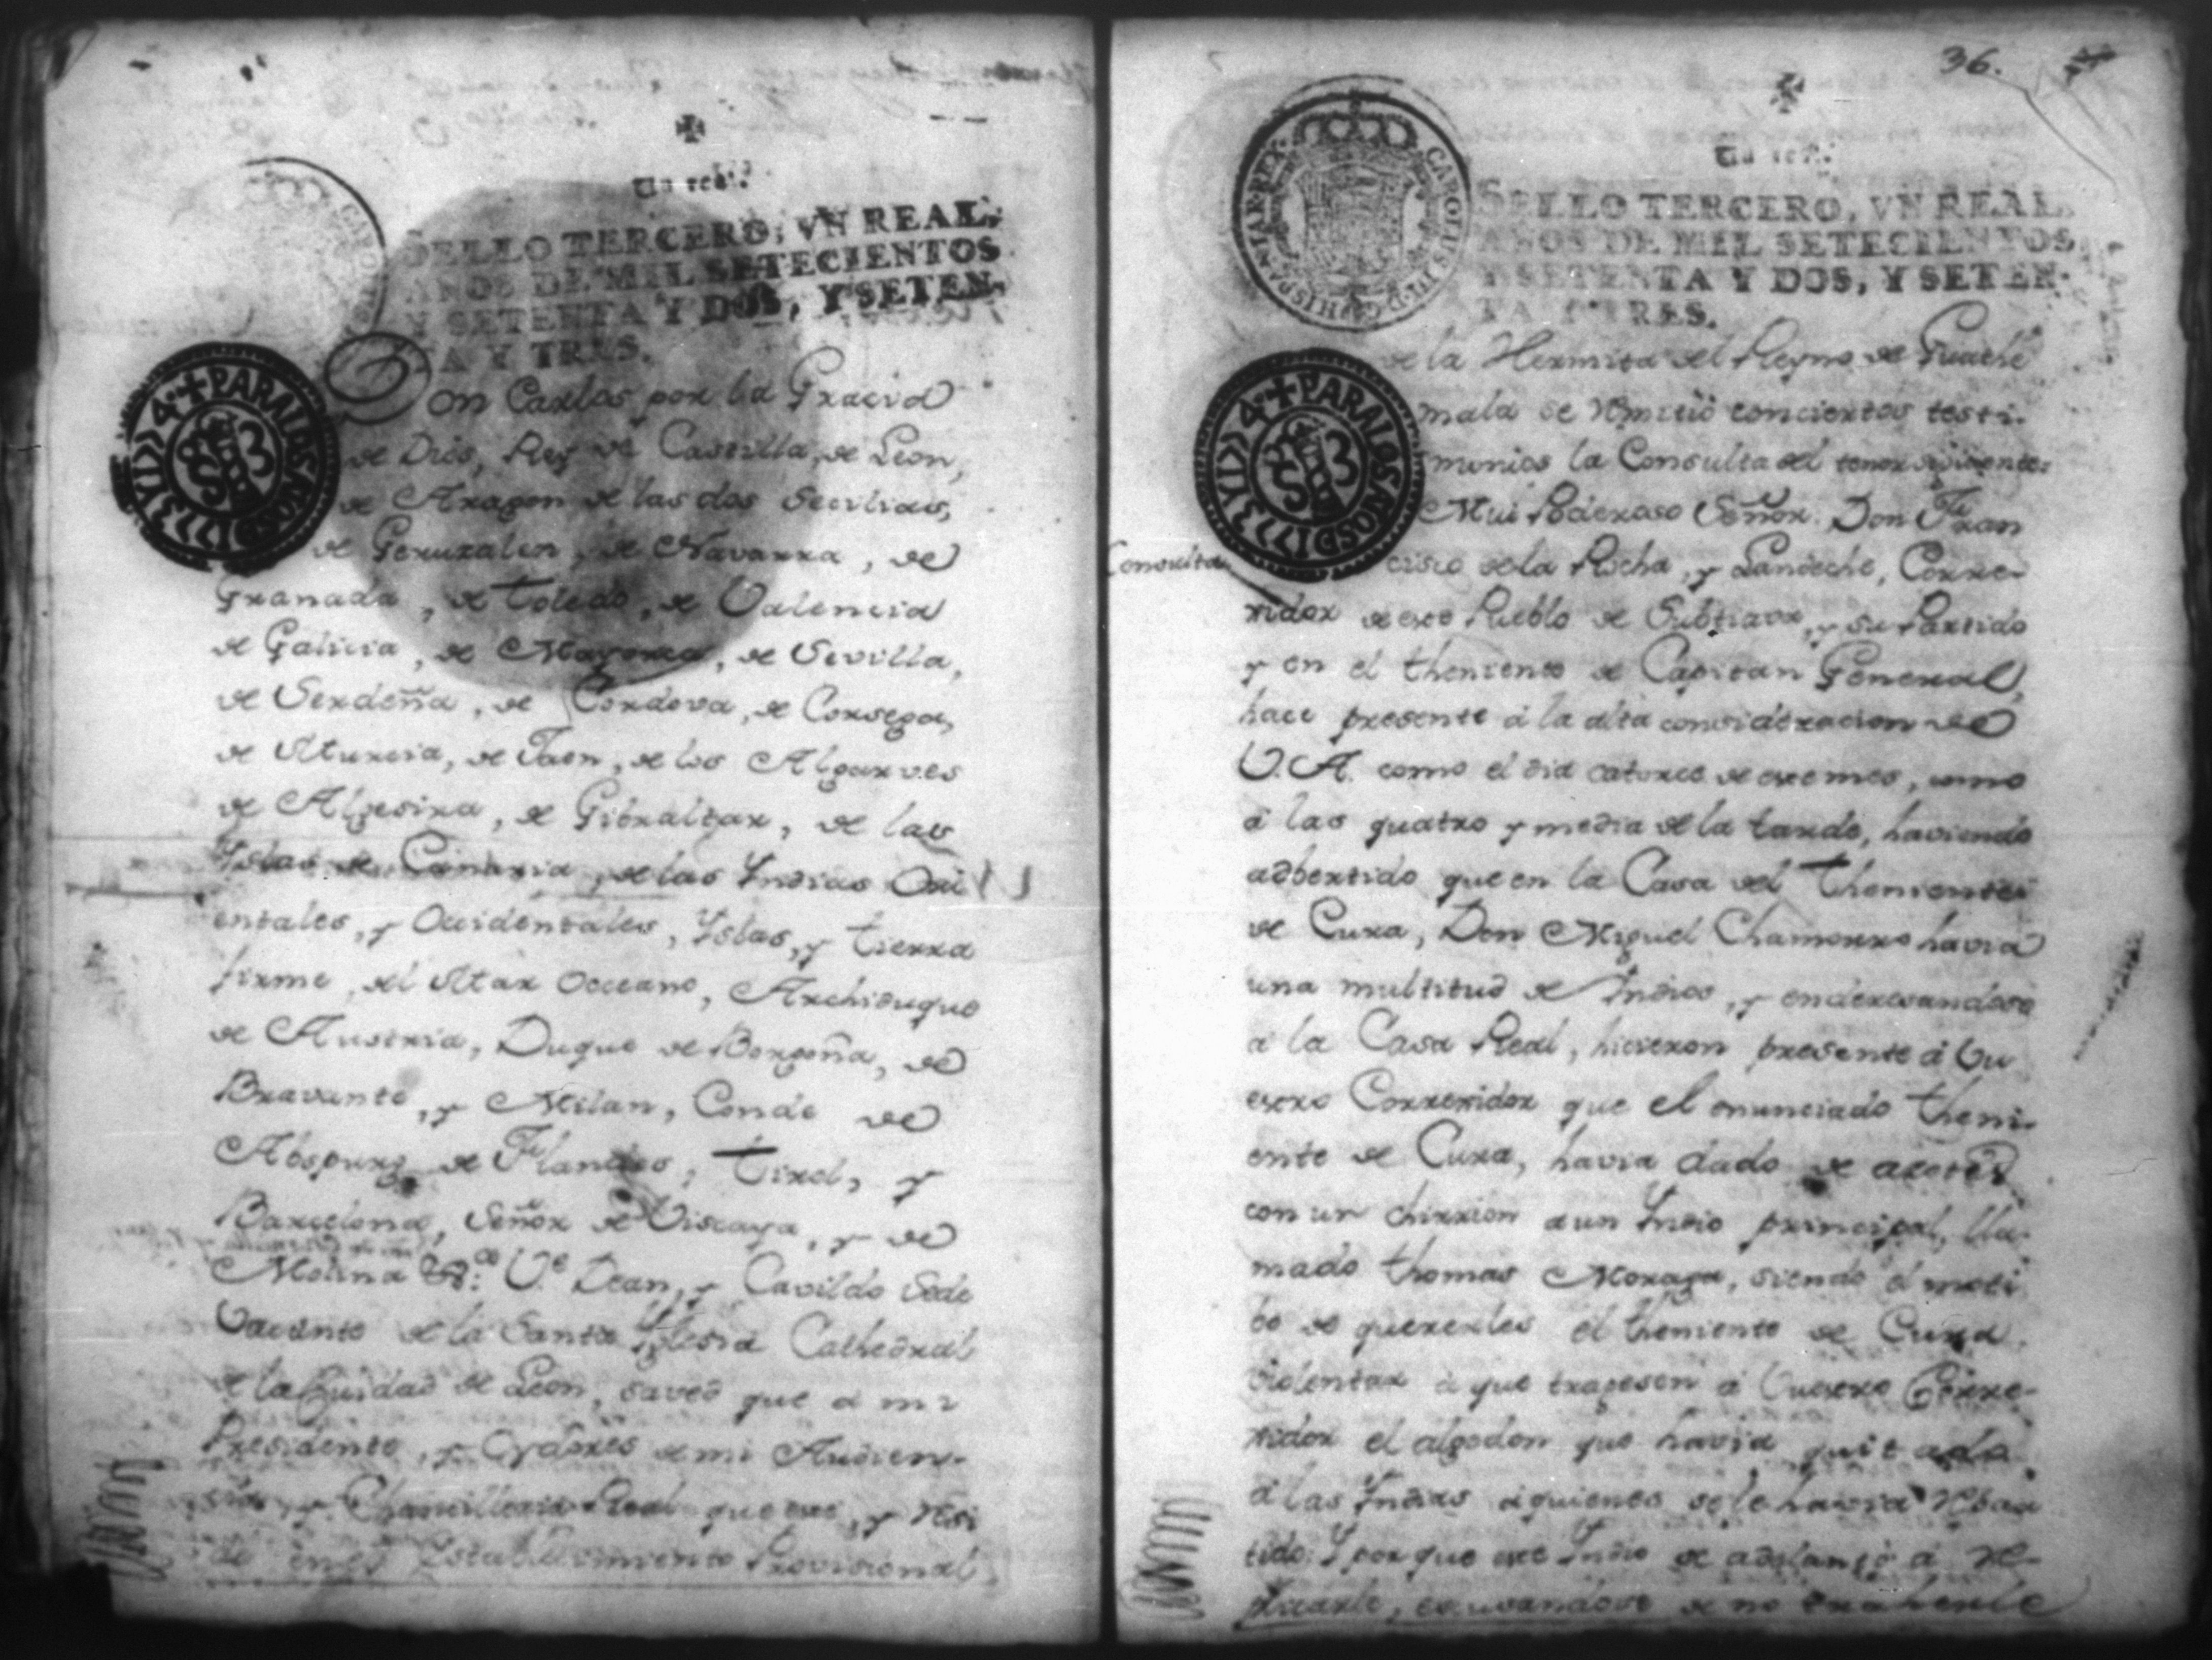 Un real.
SELLO TERCERO, VN REAL,
AÑOS DE MIL SETECIENTOS
Y SETENTA Y DOS, Y SETEN-
TA Y TRES.
PARA LOS AÑOS D 1773 Y 1774
Don Carlos por la Gracia
de Dios, Rey de Castilla, de Leon,
de Aragon de las dos Secilias,
de Geruzalen, de Navarra, de
Granada, de Toledo, de Valencia
de Galicia, de Mayorca, de Sevilla,
de Serdeña, de Cordova, de Corsega,
de Murcia, de Jaen, de los Algarves
de Algesira, de Gibraltar, de las
Yslas de Canaria, de las Yndias Ori
entales, y Occidentales, Yslas, y tierra
firme, del Mar Occeano, Archiduque
de Austria, Duque de Borgoña, de
Bravante, y Milan, Conde de
Abspurg de Flandes, Tirol, y
Barcelona, Señor de Viscaya, y de
Molina &ca. Ve. Dean, y Cavildo Sede
Vacante de la Santa Yglesia Cathedral
de la Ciudad de Leon, saved que a mi
Presidente, y Oydores de mi Audien-
cia, y Chancilleria Real que ese, y resi
de en el Establecimiento Provisional
36.
Un real.
CAROLUS III D G HISPANIAR REX
SELLO TERCERO, VN REAL,
AÑOS DE MIL SETECIENTOS
Y SETENTA Y DOS, Y SETEN-
TA Y TRES.
PARA LOS AÑOS D 1773 Y 1774
de la Hermita del Reyno de Guathe
mala se remitió con ciertos testi-
monios la Consulta del tenor siguiente:
Mui Poderoso Señor. Don Fran
Consulta
cisco de la Rocha, y Landeche, Corre-
xidor de este Pueblo de Subtiava, y su Partido
y en el theniente de Capitan General,
hace presente á la alta consideracion de
V.A. como el dia catorce de este mes, como
á las quatro y media de la tarde, haviendo
adbertido que en la Casa del Theniente
de Cura, Don Miguel Chamorro havia
una multitud de Yndios, y enderesandose
a la Casa Real, hicieron presente á Vu
estro Correxidor que el enunciado Theni-
ente de Cura, havia dado de azotes
con un chirrion a un Yndio principal, lla-
mado Thomas Moraga, siendo el moti
bo de quererles el theniente de Cura
violentar á que tragesen á Vuestro Corre-
xidor el algodon que havia quitado
á las Yndias á quienes se le havia repar
tido: Y porque este Yndio se adelantó á re-
plicarle, escusandose de no traherle